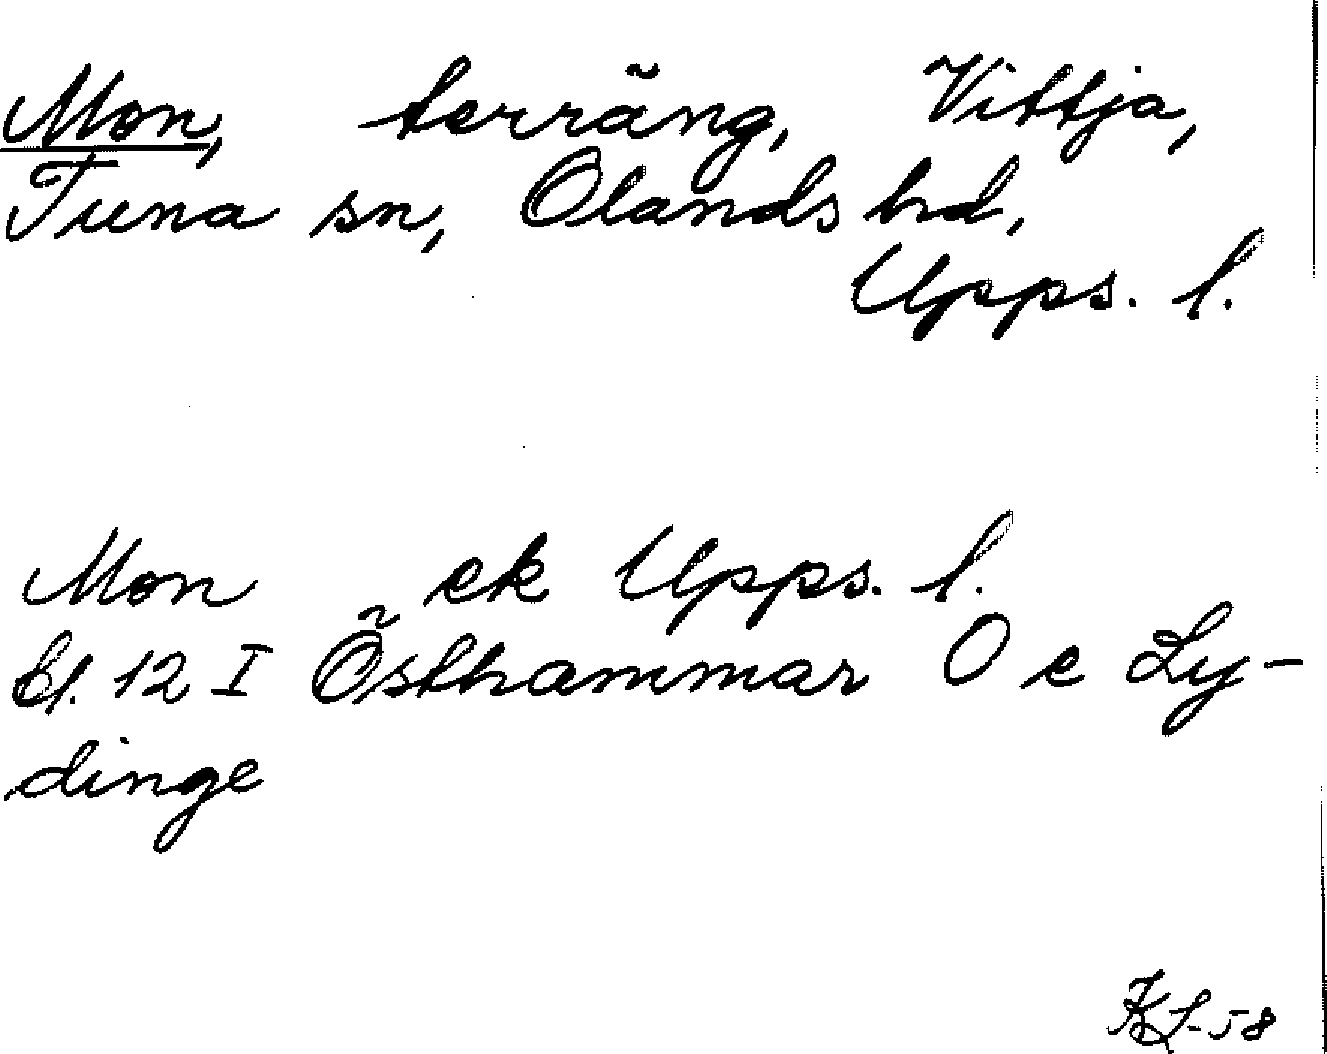 Mon, terräng, Vittja,
Tuna sn, Olands hd,
Upps. l.
Mon ek Upps. l.
bl. 12 I Östhammar O e Ly-
dinge
KL-58